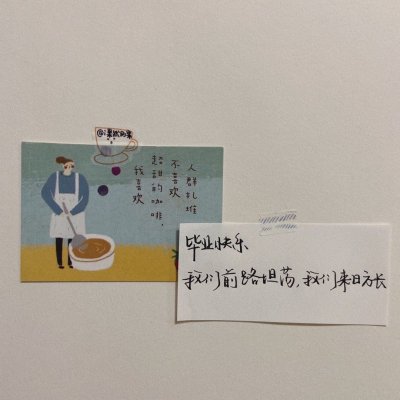 人群扎堆
不喜欢
超甜的咖啡，
我喜欢
毕业快乐
我们前路坦荡，我们来日方长